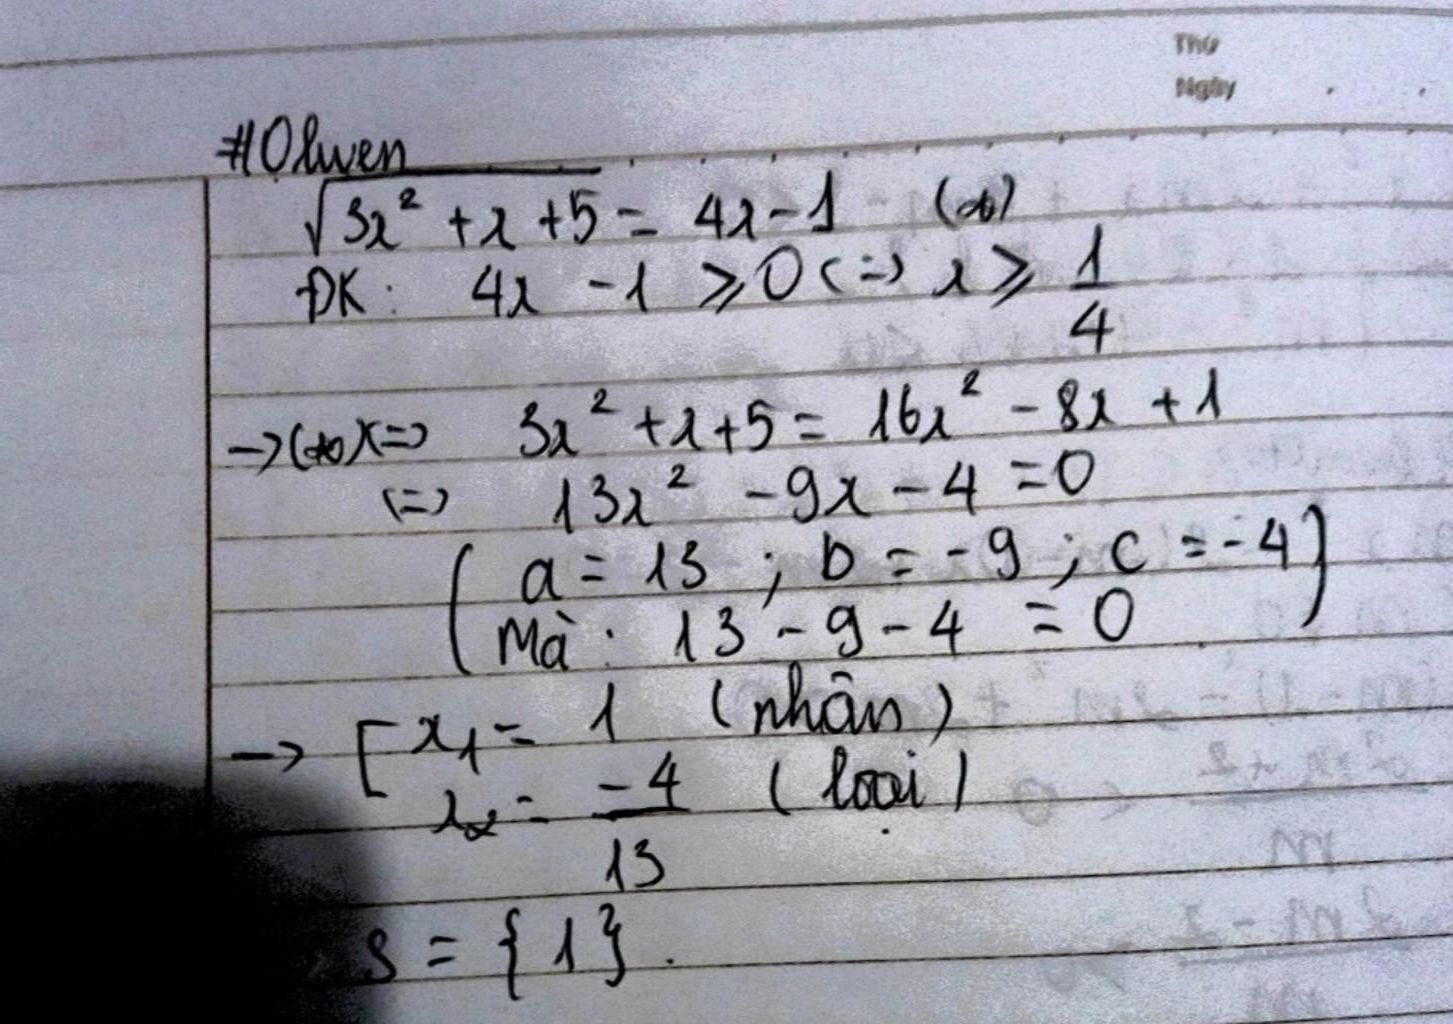 Thứ
Ngày
#Olwen
√(3x² + x + 5) = 4x - 1 (*)
ĐK: 4x - 1 ≥ 0 <=> x ≥ 1/4
→ (*) <=> 3x² + x + 5 = 16x² - 8x + 1
<=> 13x² - 9x - 4 = 0
( a = 13 ; b = -9 ; c = -4 )
Mà : 13 - 9 - 4 = 0
→ [ x₁ = 1 (nhận)
x₂ = -4/13 (loại)
S = {1}.